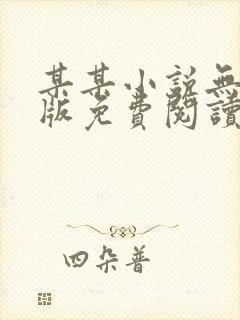 某某小說無
版免費閱讀
四朵普